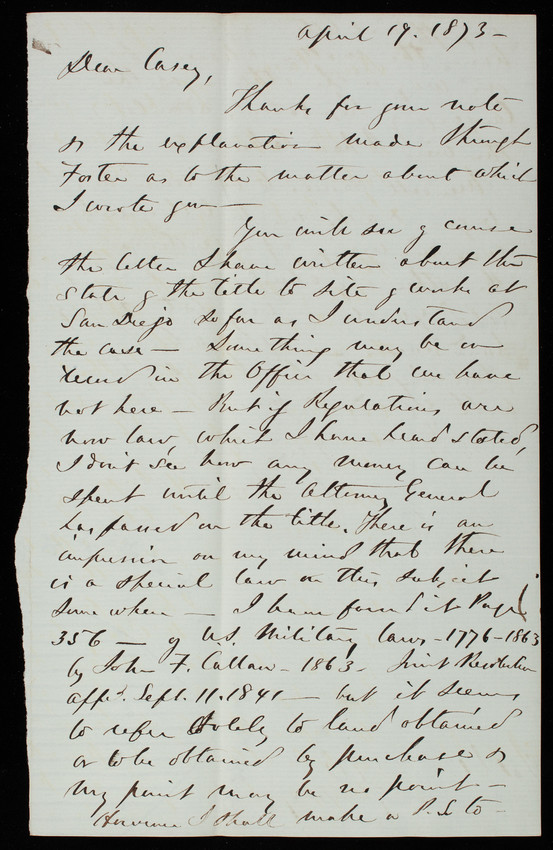 April 19. 1873 -
Dear Casey,
Thanks for your note
& the explanation made through
Foster as to the matter about which
I wrote you -
You will see of course
the letter I have written about the
state of the title to site of works at
San Diego so far as I understand
the case - Something may be on
record in the Office that we have
not here - But if Regulations are
now law, which I have heard stated,
I don't see how any money can be
spent until the Attorney General
has passed on the title. There is an
impression on my mind that there
is a special law on this subject
somewhere - I have found it Page
356 - of U.S. Military laws - 1776-1863
by John F. Callan - 1863 - Joint Resolution
appd. Sept. 11. 1841 - but it seems
to refer solely to land obtained
or to be obtained by purchase &
my point may be no point -
However I shall make a P.S. to -